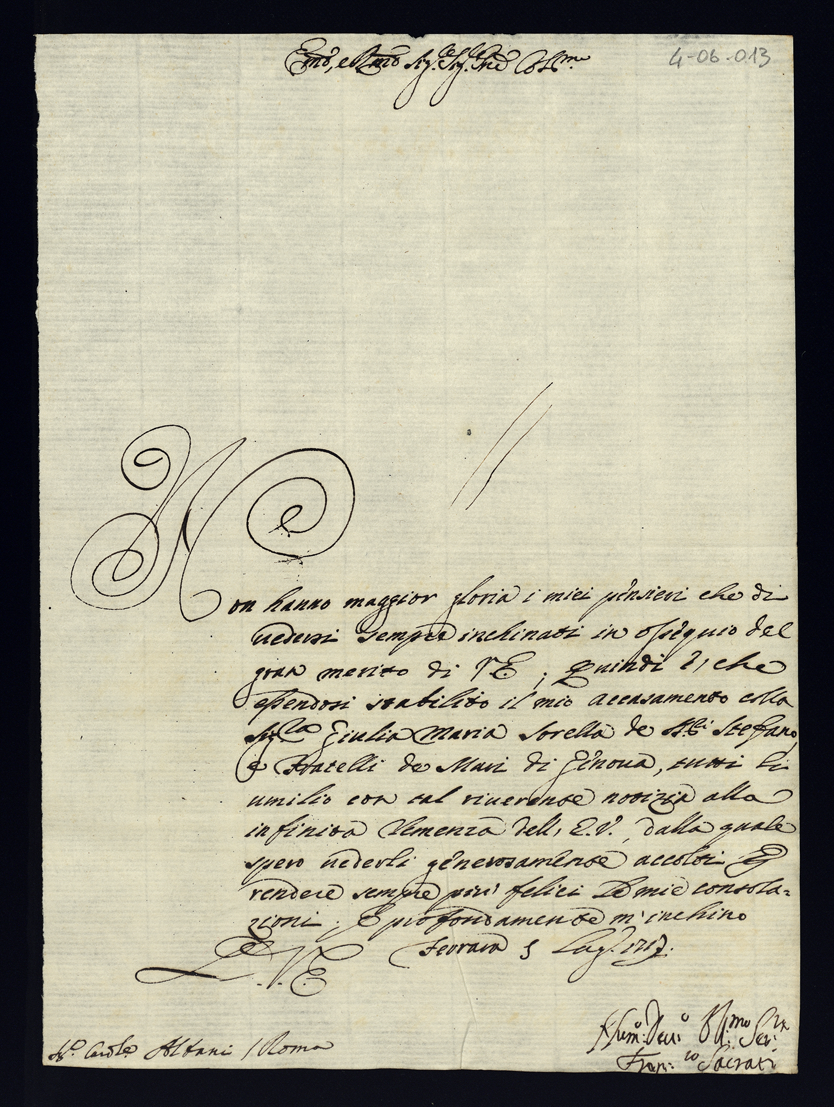 Em̃o, e Rm̃o Sig.re Sig.re Pñe Col.mo
4-06-013
Non hanno maggior gloria i miei pensieri che di
uedersi sempre inchinati in ossequio del
gran merito di V.E; Quindi è, che
essendosi stabilito il mio accasamento colla
Sig.ra Giulia Maria Sorella de SS.ri Stefano,
e Fratelli de Mari di Genoua, tutti li
umilio con tal riuerente notizia alla
infinita Clemenza dell' E.V., dalla quale
spero uederli generosamente accolti
rendere sempre più felici le mie consola=
zioni. E profondamente m'inchino
Ferrara 5 Lug.o 1717.
D. V. E
S.r Card.le Albani / Roma
Hum.o Deu.o Obl.mo Ser.re
Fran.co Sacrati